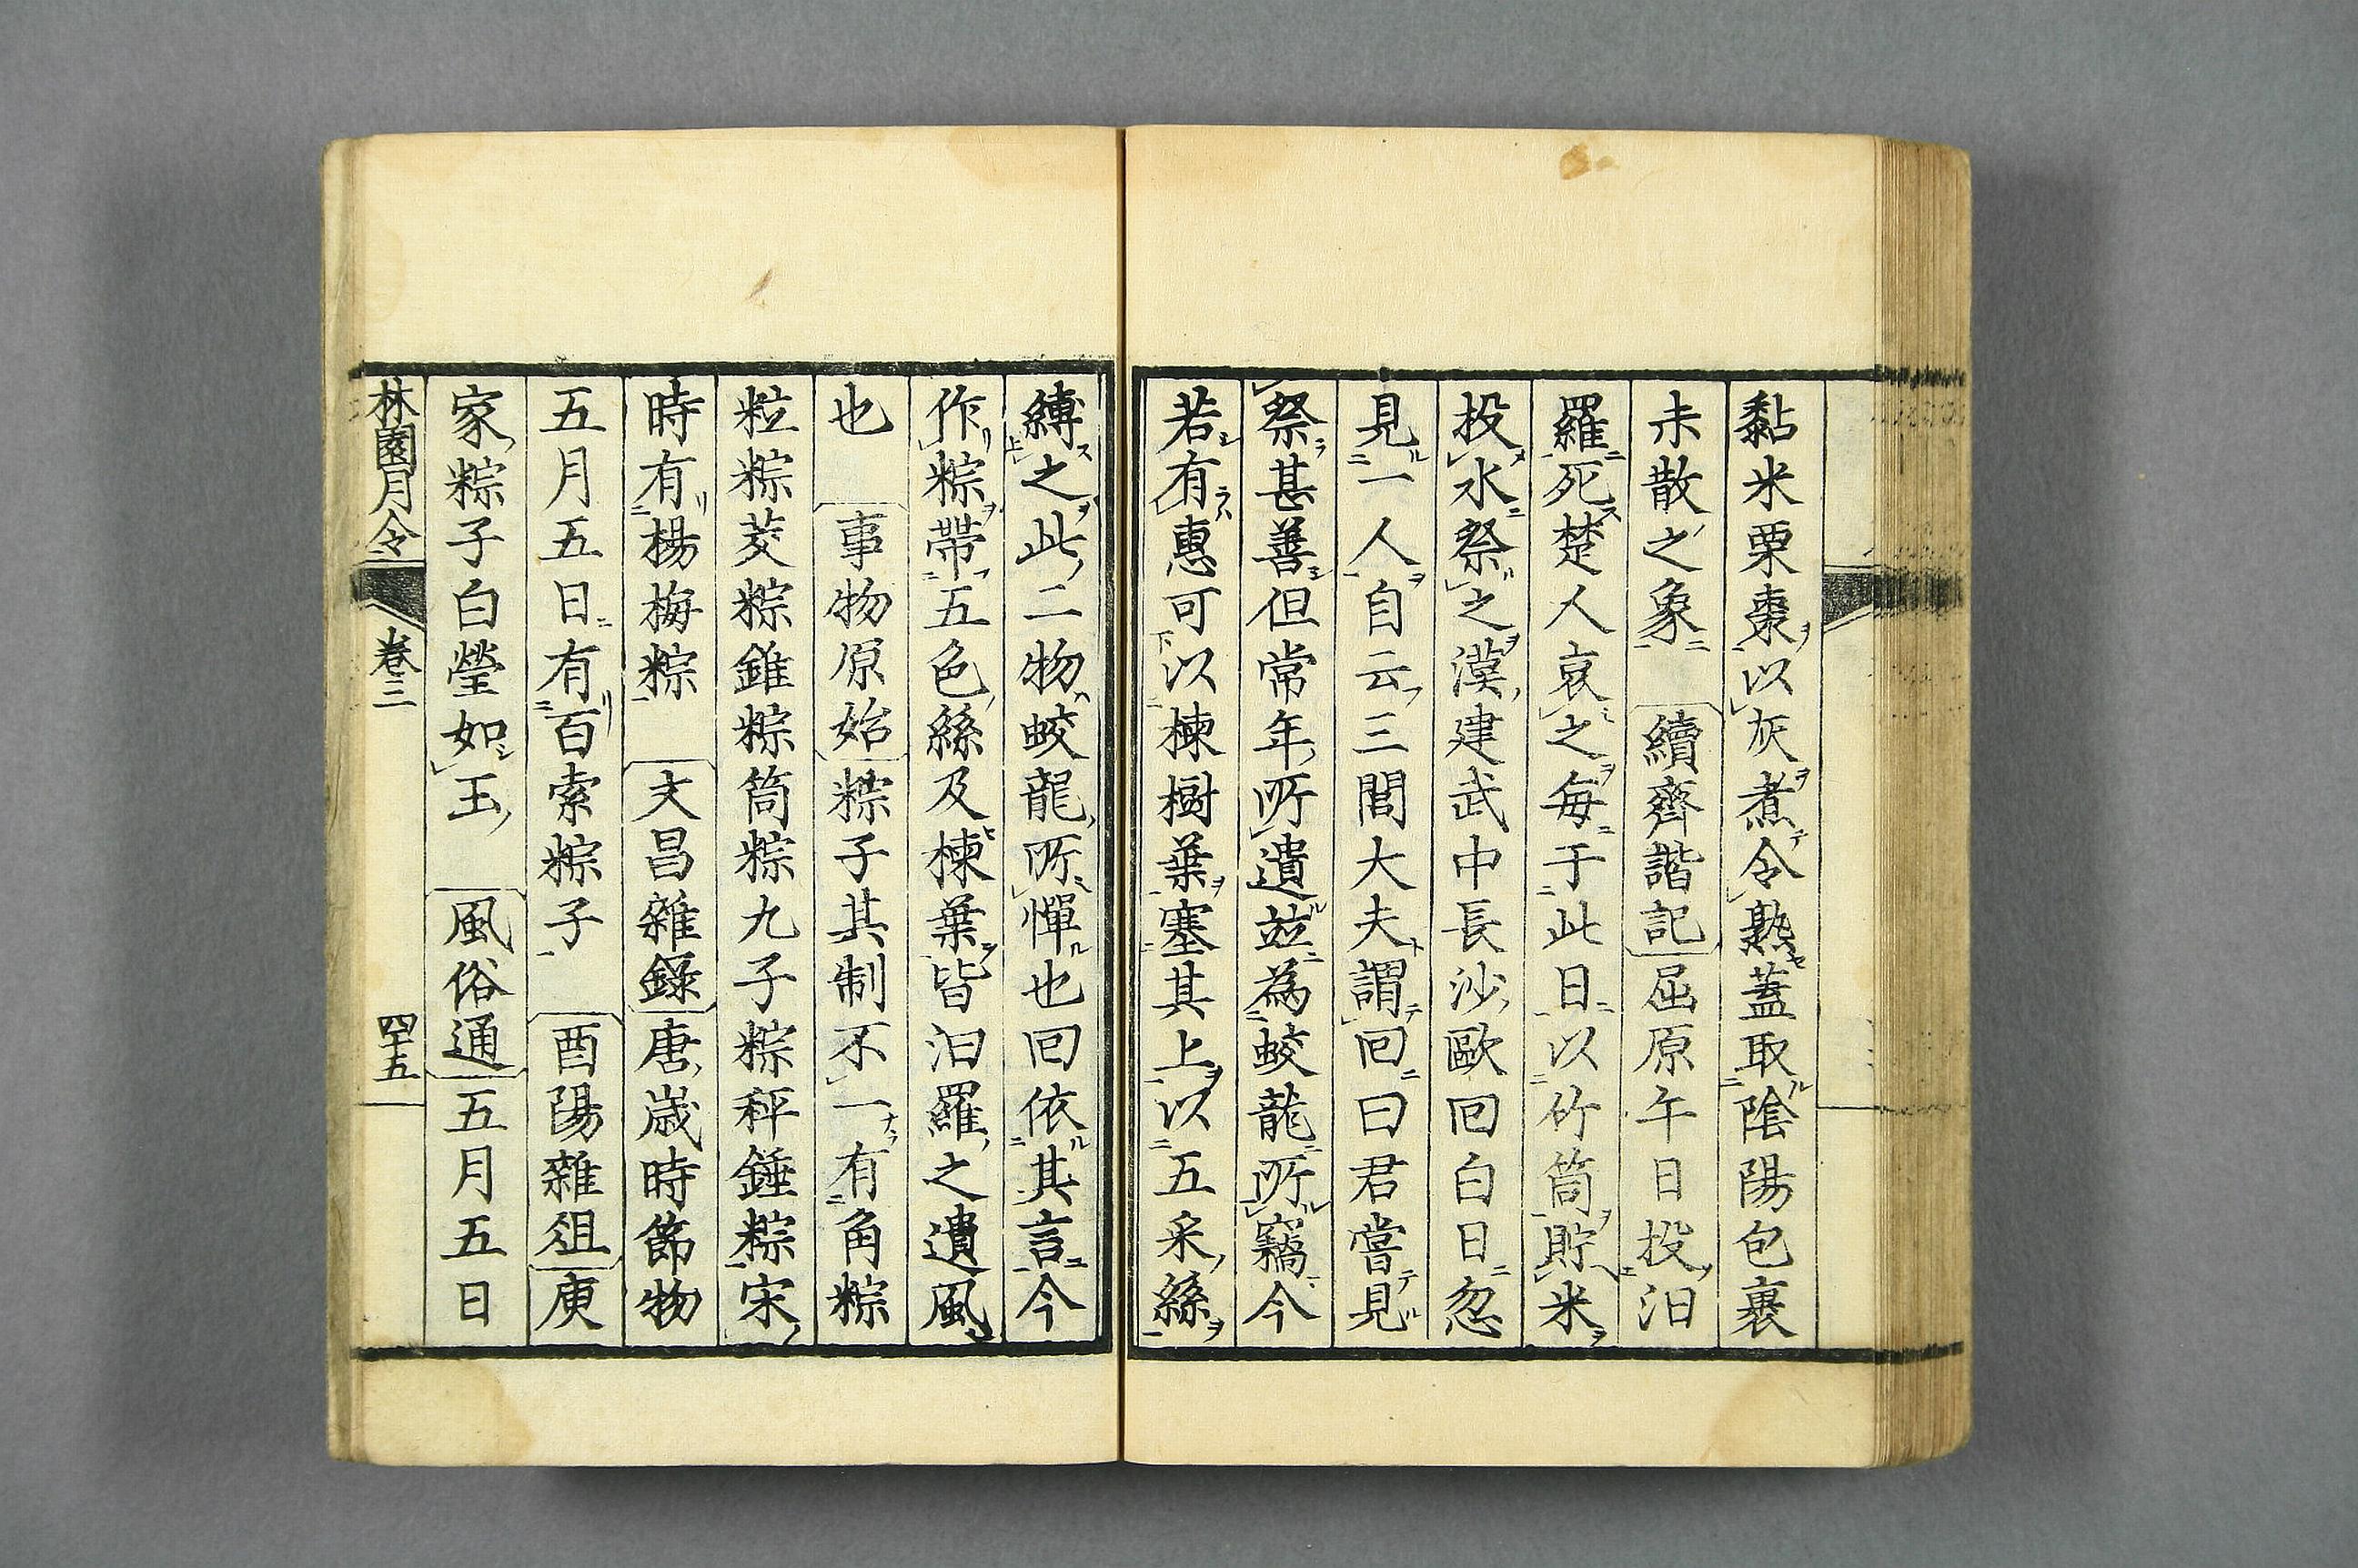 黏米栗棗以灰煮令熟蓋取陰陽包裹
未散之象 續齊諧記 屈原午日投汨
羅死楚人哀之每于此日以竹筒貯米
投水祭之漢建武中長沙歐回白日忽
見一人自云三閭大夫謂回曰君嘗見
祭甚善但常年所遺並為蛟龍所竊今
若有惠可以楝樹葉塞其上以五采絲
縛之此二物蛟龍所憚也回依其言今
作粽帶五色絲及楝葉皆汨羅之遺風
也 事物原始 粽子其制不一有角粽
粒粽茭粽錐粽筒粽九子粽秤錘粽宋
時有楊梅粽 文昌雜錄 唐歲時節物
五月五日有百索粽子 酉陽雜俎 庾
家粽子白瑩如玉 風俗通 五月五日
林園月令 卷三 四十五